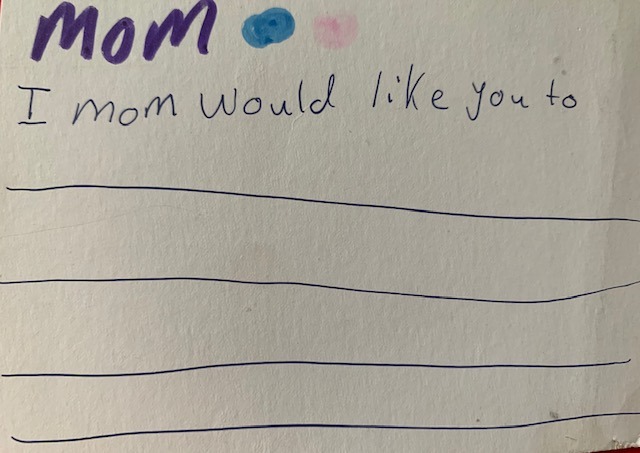 Mom
I mom would like you to